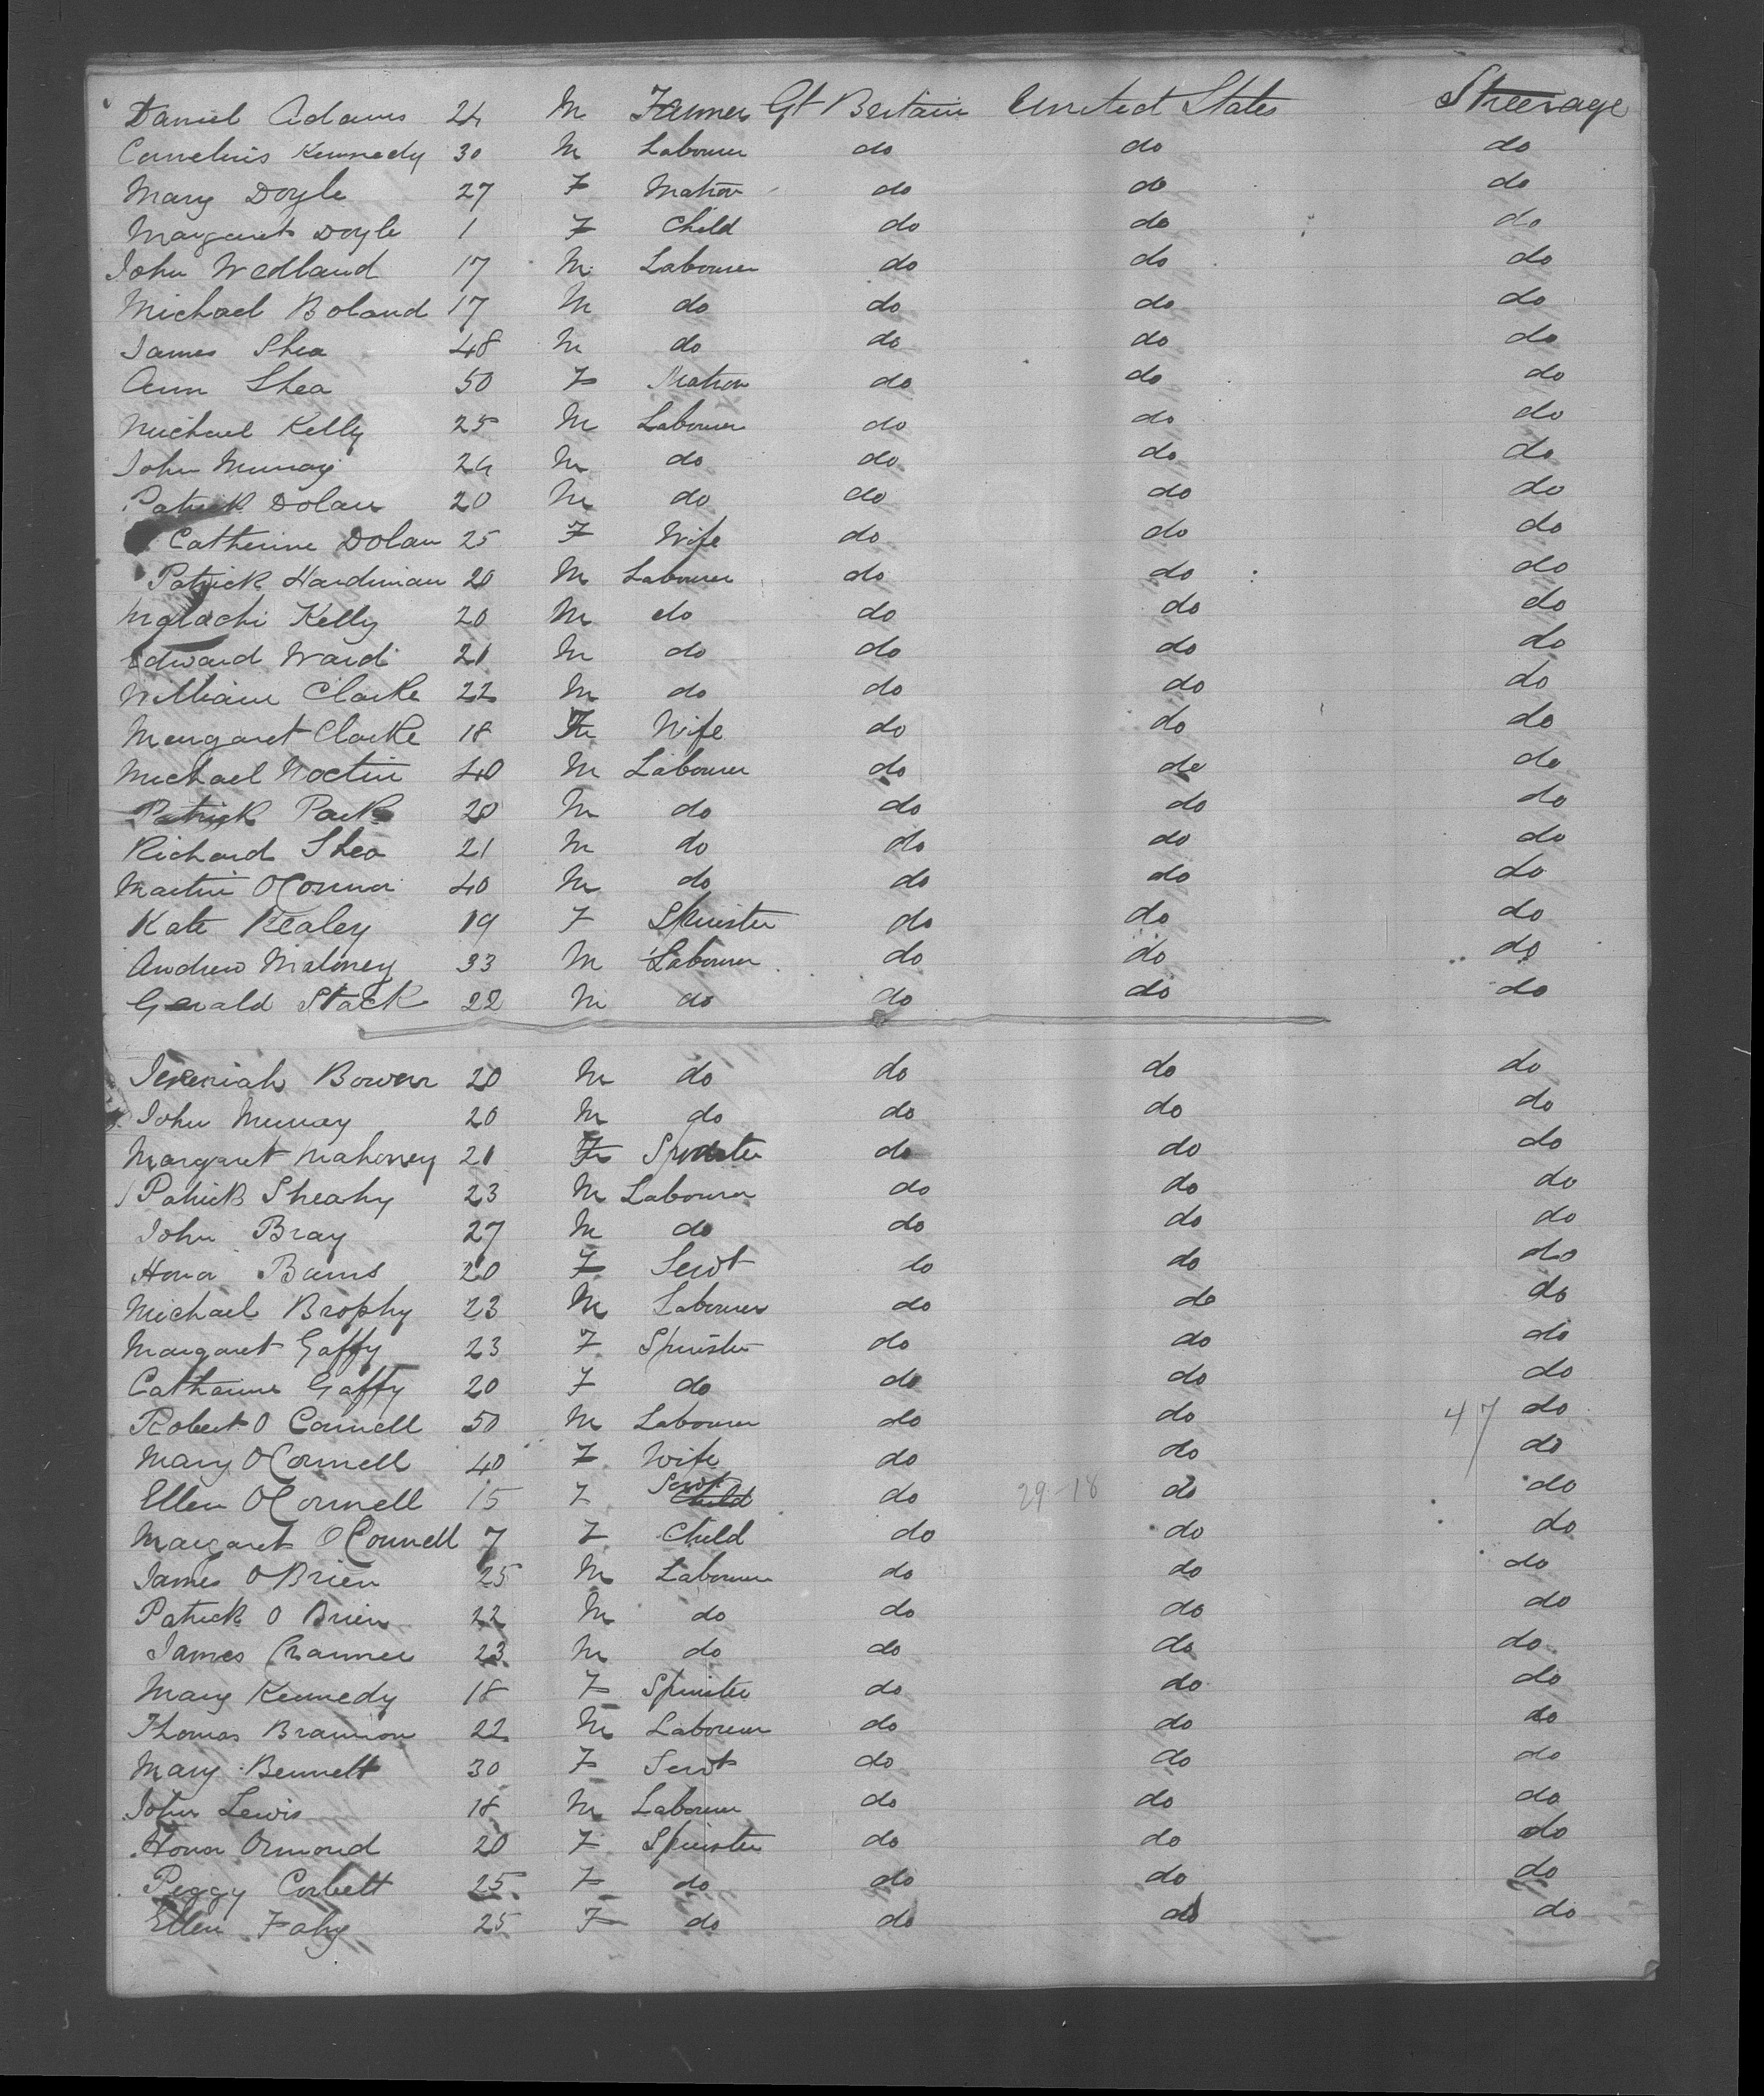 Daniel Adams 24 M Farmer Gt Britain United States Steerage
Cornelius Kennedy 30 M Labourer do do do
Mary Doyle 27 F Matron do do do
Margaret Doyle 1 F Child do do do
John Wedland 17 M Labourer do do do
Michael Boland 17 M do do do do
James Shea 48 M do do do do
Ann Shea 50 F Matron do do do
Michael Kelly 25 M Labourer do do do
John Murray 24 M do do do do
Patrick Dolan 20 M do do do do
Catherine Dolan 25 F Wife do do do
Patrick Hardiman 20 M Labourer do do do
Malachi Kelly 20 M do do do do
Edward Ward 21 M do do do do
William Clarke 22 M do do do do
Margaret Clarke 18 F Wife do do do
Michael Noctin 40 M Labourer do do do
Patrick Park 20 M do do do do
Richard Shea 21 M do do do do
Martin OConnor 40 M do do do do
Kate Kealey 19 F Spinster do do do
Andrew Maloney 33 M Labourer do do do
Gerald Stack 22 M do do do do
Jeremiah Bowen 20 M do do do do
John Murray 20 M do do do do
Margaret Mahoney 21 F Spinster do do do
Patrick Sheahy 23 M Labourer do do do
John Bray 27 M do do do do
Honor Burns 20 F Servt do do do
Michael Brophy 23 M Labourer do do do
Margaret Gaffy 23 F Spinster do do do
Catharine Gaffy 20 F do do do do
Robert O Connell 50 M Labourer do do 47 do
Mary OConnell 40 F Wife do do do
Ellen OConnell 15 F Servt Child do 29-18 do do
Margaret OConnell 7 F Child do do do
James OBrien 25 M Labourer do do do
Patrick O Brien 22 M do do do do
James Cranmer 23 M do do do do
Mary Kennedy 18 F Spinster do do do
Thomas Brannon 22 M Labourer do do do
Mary Bennett 30 F Servt do do do
John Lewis 18 M Labourer do do do
Honor Ormond 20 F Spinster do do do
Peggy Corbett 25 F do do do do
Ellen Fahy 25 F do do do do